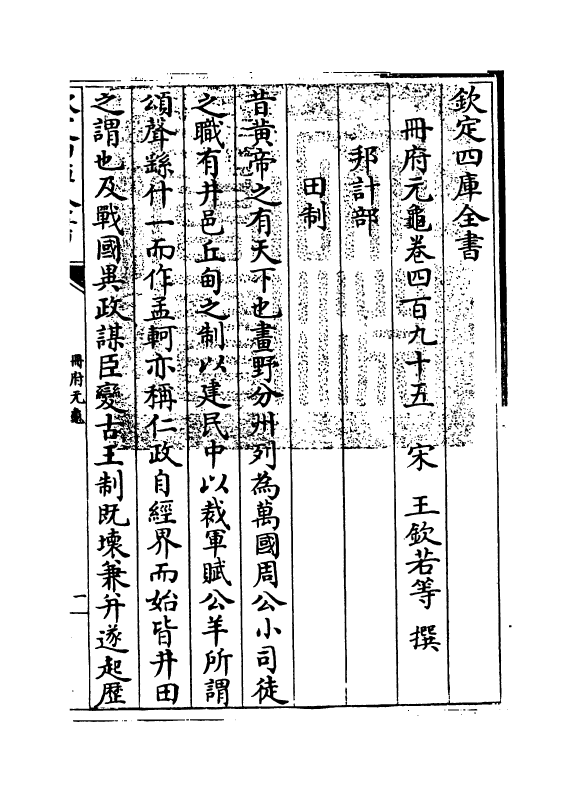 欽定四庫全書
冊府元龜卷四百九十五　宋　王欽若等　撰
邦計部
田制
昔黃帝之有天下也畫野分州列為萬國周公小司徒
之職有井邑丘甸之制以建民中以裁軍賦公羊所謂
頌聲繇什一而作孟軻亦稱仁政自經界而始皆井田
之謂也及戰國異政謀臣變古王制既壞兼并遂起歴
冊府元龜